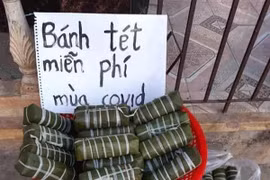 Bánh tét
miễn phí
mùa covid